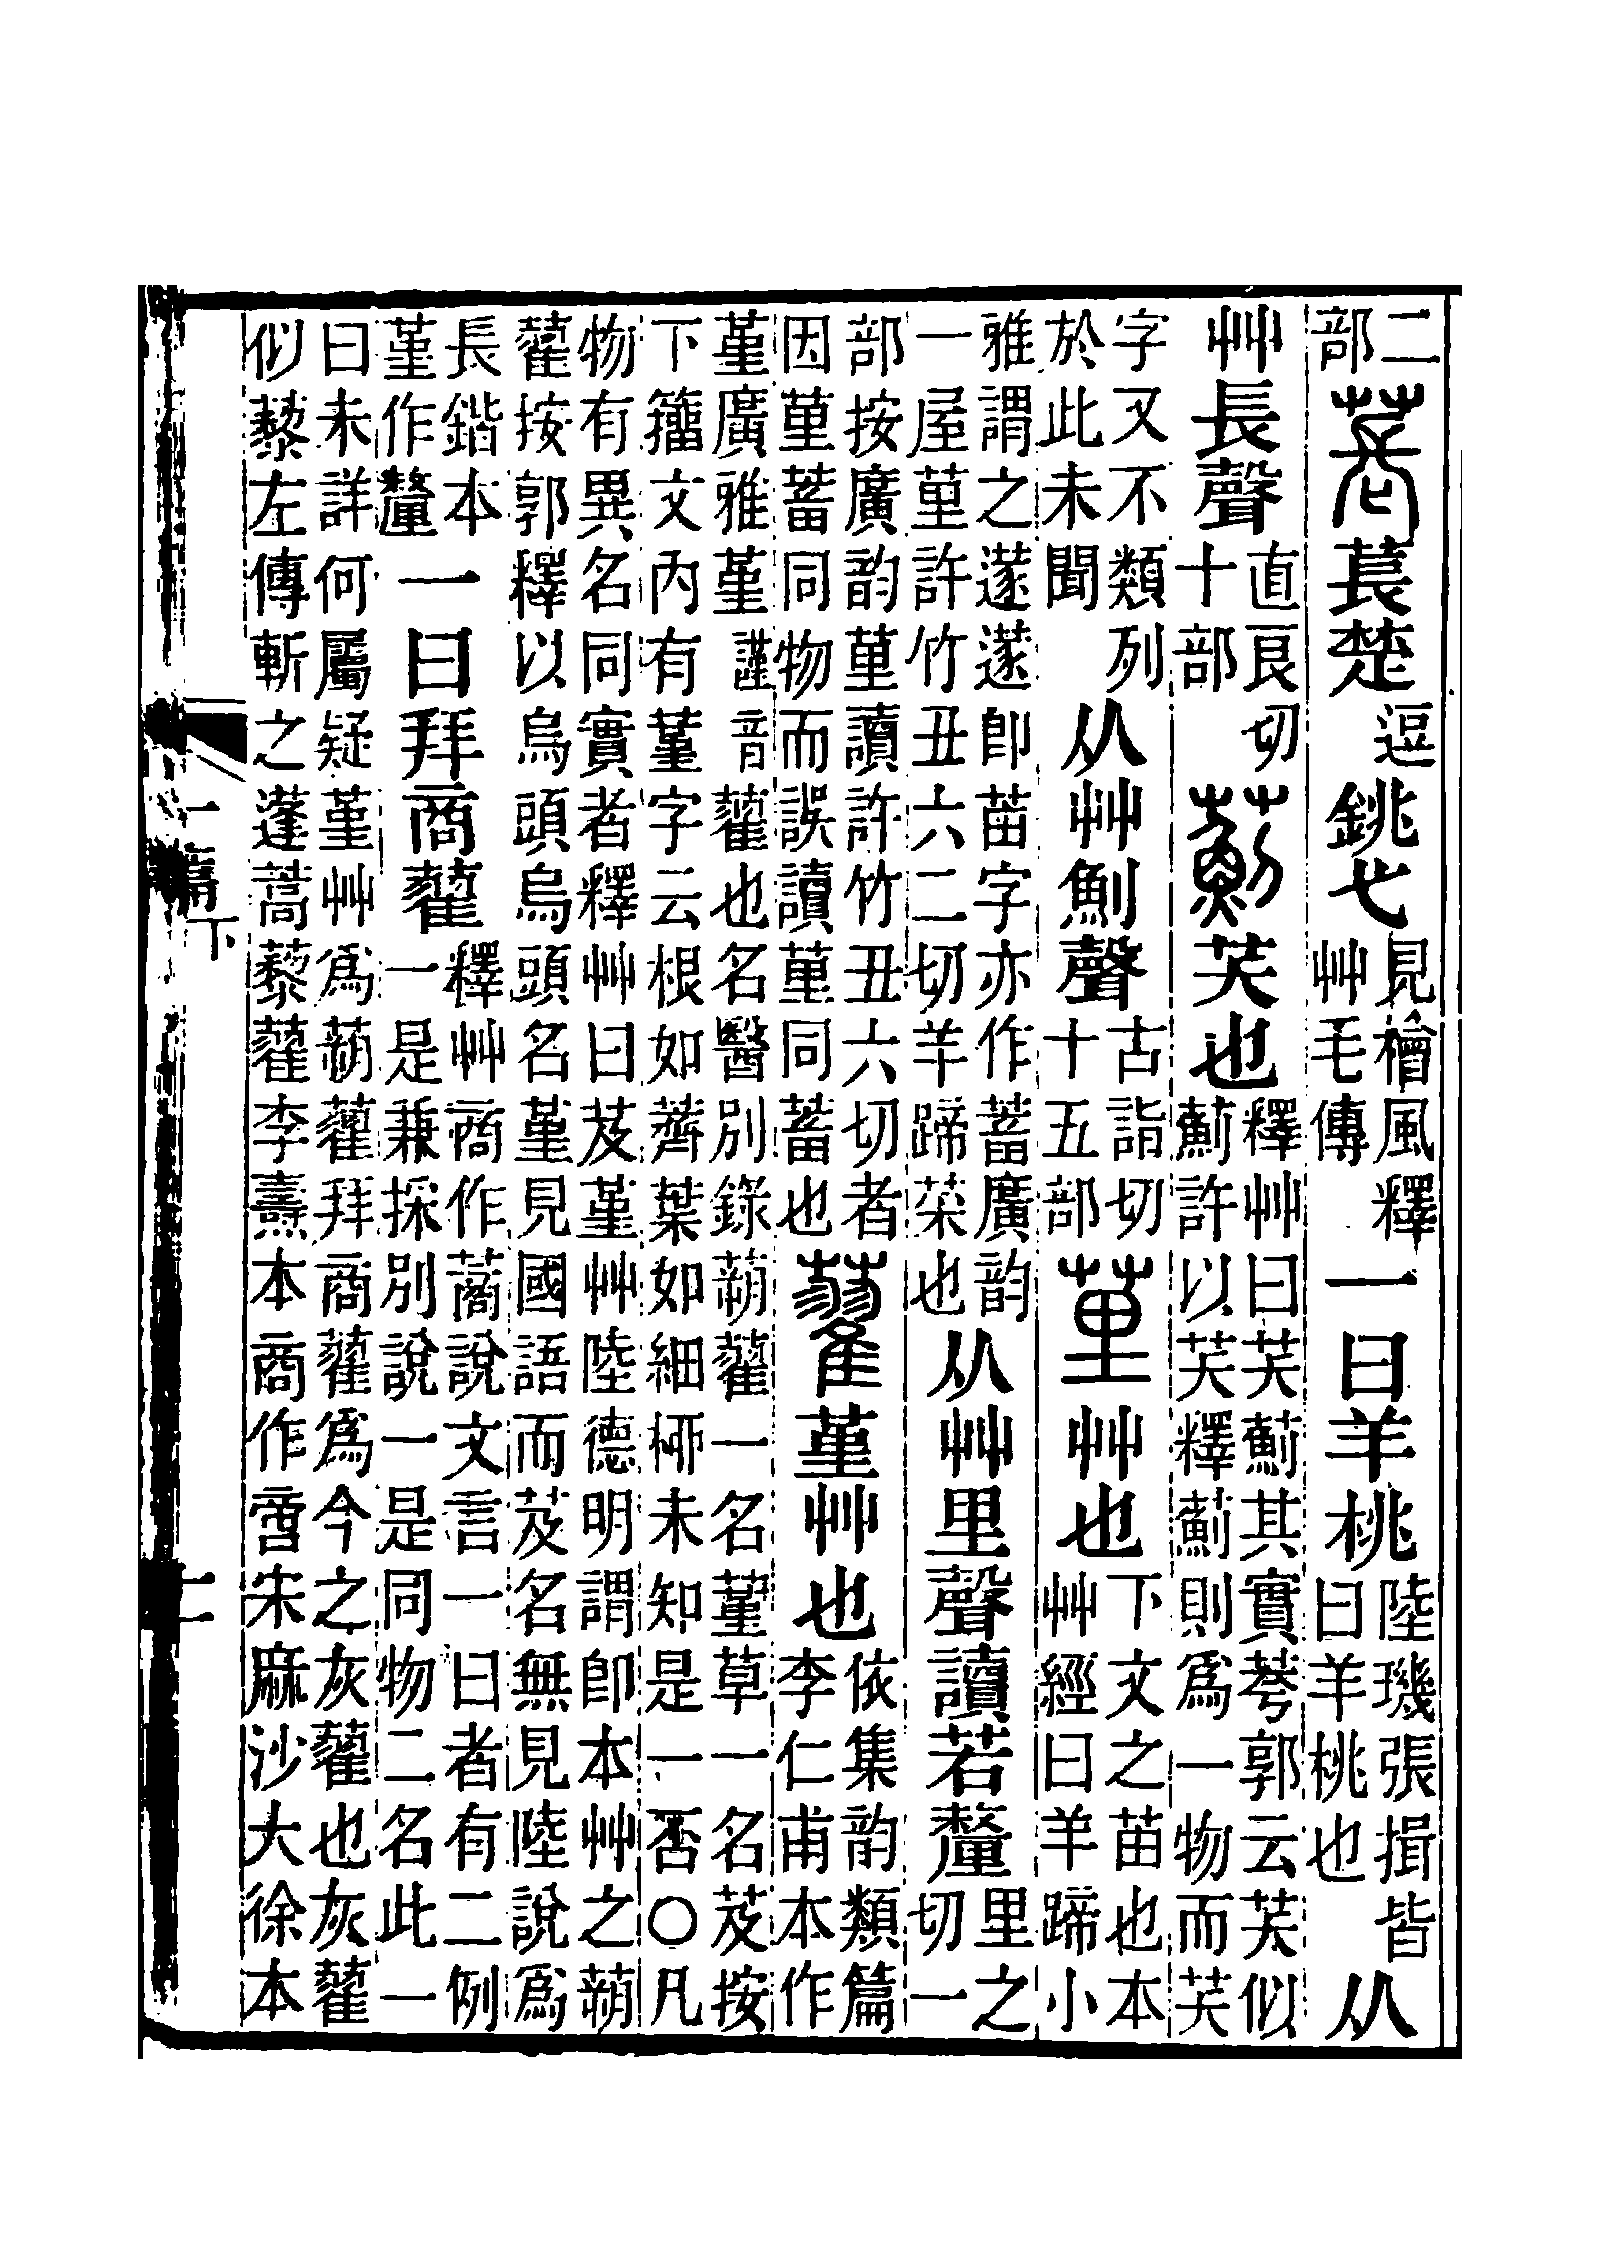 二部萇萇楚逗銚弋見檜風釋艸毛傳一曰羊桃陸璣張揖皆曰羊桃也从
艸長聲直良切十部薊芺也釋艸曰芺薊其實荂郭云芺似薊許以芺釋薊則爲一物而芺
字又不類列於此未聞从艸魝聲古詣切十五部荲艸也下文之苗也本艸經曰羊蹄小
雅謂之蓫蓫卽苗字亦作蓄廣韵一屋荲許竹丑六二切羊蹄菜也从艸里聲讀若釐里之切一
部按廣韵荲讀許竹丑六切者因荲蓄同物而誤讀荲同蓄也藋堇艸也依集韵類篇李仁甫本作
堇廣雅堇謹音藋也名醫別錄蒴藋一名堇草一名芨按下籒文內有堇字云根如薺葉如細桺未知是一否○凡
物有異名同實者釋艸曰芨堇艸陸德明謂卽本艸之蒴藋按郭釋以烏頭烏頭名堇見國語而芨名無見陸說爲
長鍇本堇作釐一曰拜商藋釋艸商作蔏說文言一曰者有二例一是兼採別說一是同物二名此一
曰未詳何屬疑堇艸爲蒴藋拜商藋爲今之灰藋也灰藋似藜左傳斬之蓬蒿藜藋李燾本商作啻宋麻沙大徐本
一篇下